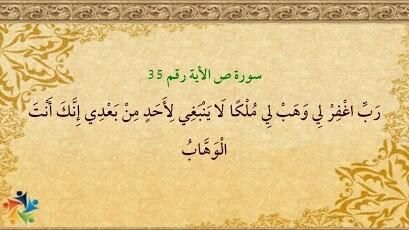 سورة ص الأية رقم 35
رَبِّ اغْفِرْ لِي وَهَبْ لِي مُلْكًا لَا يَنْبَغِي لِأَحَدٍ مِنْ بَعْدِي إِنَّكَ أَنْتَ
الْوَهَّابُ